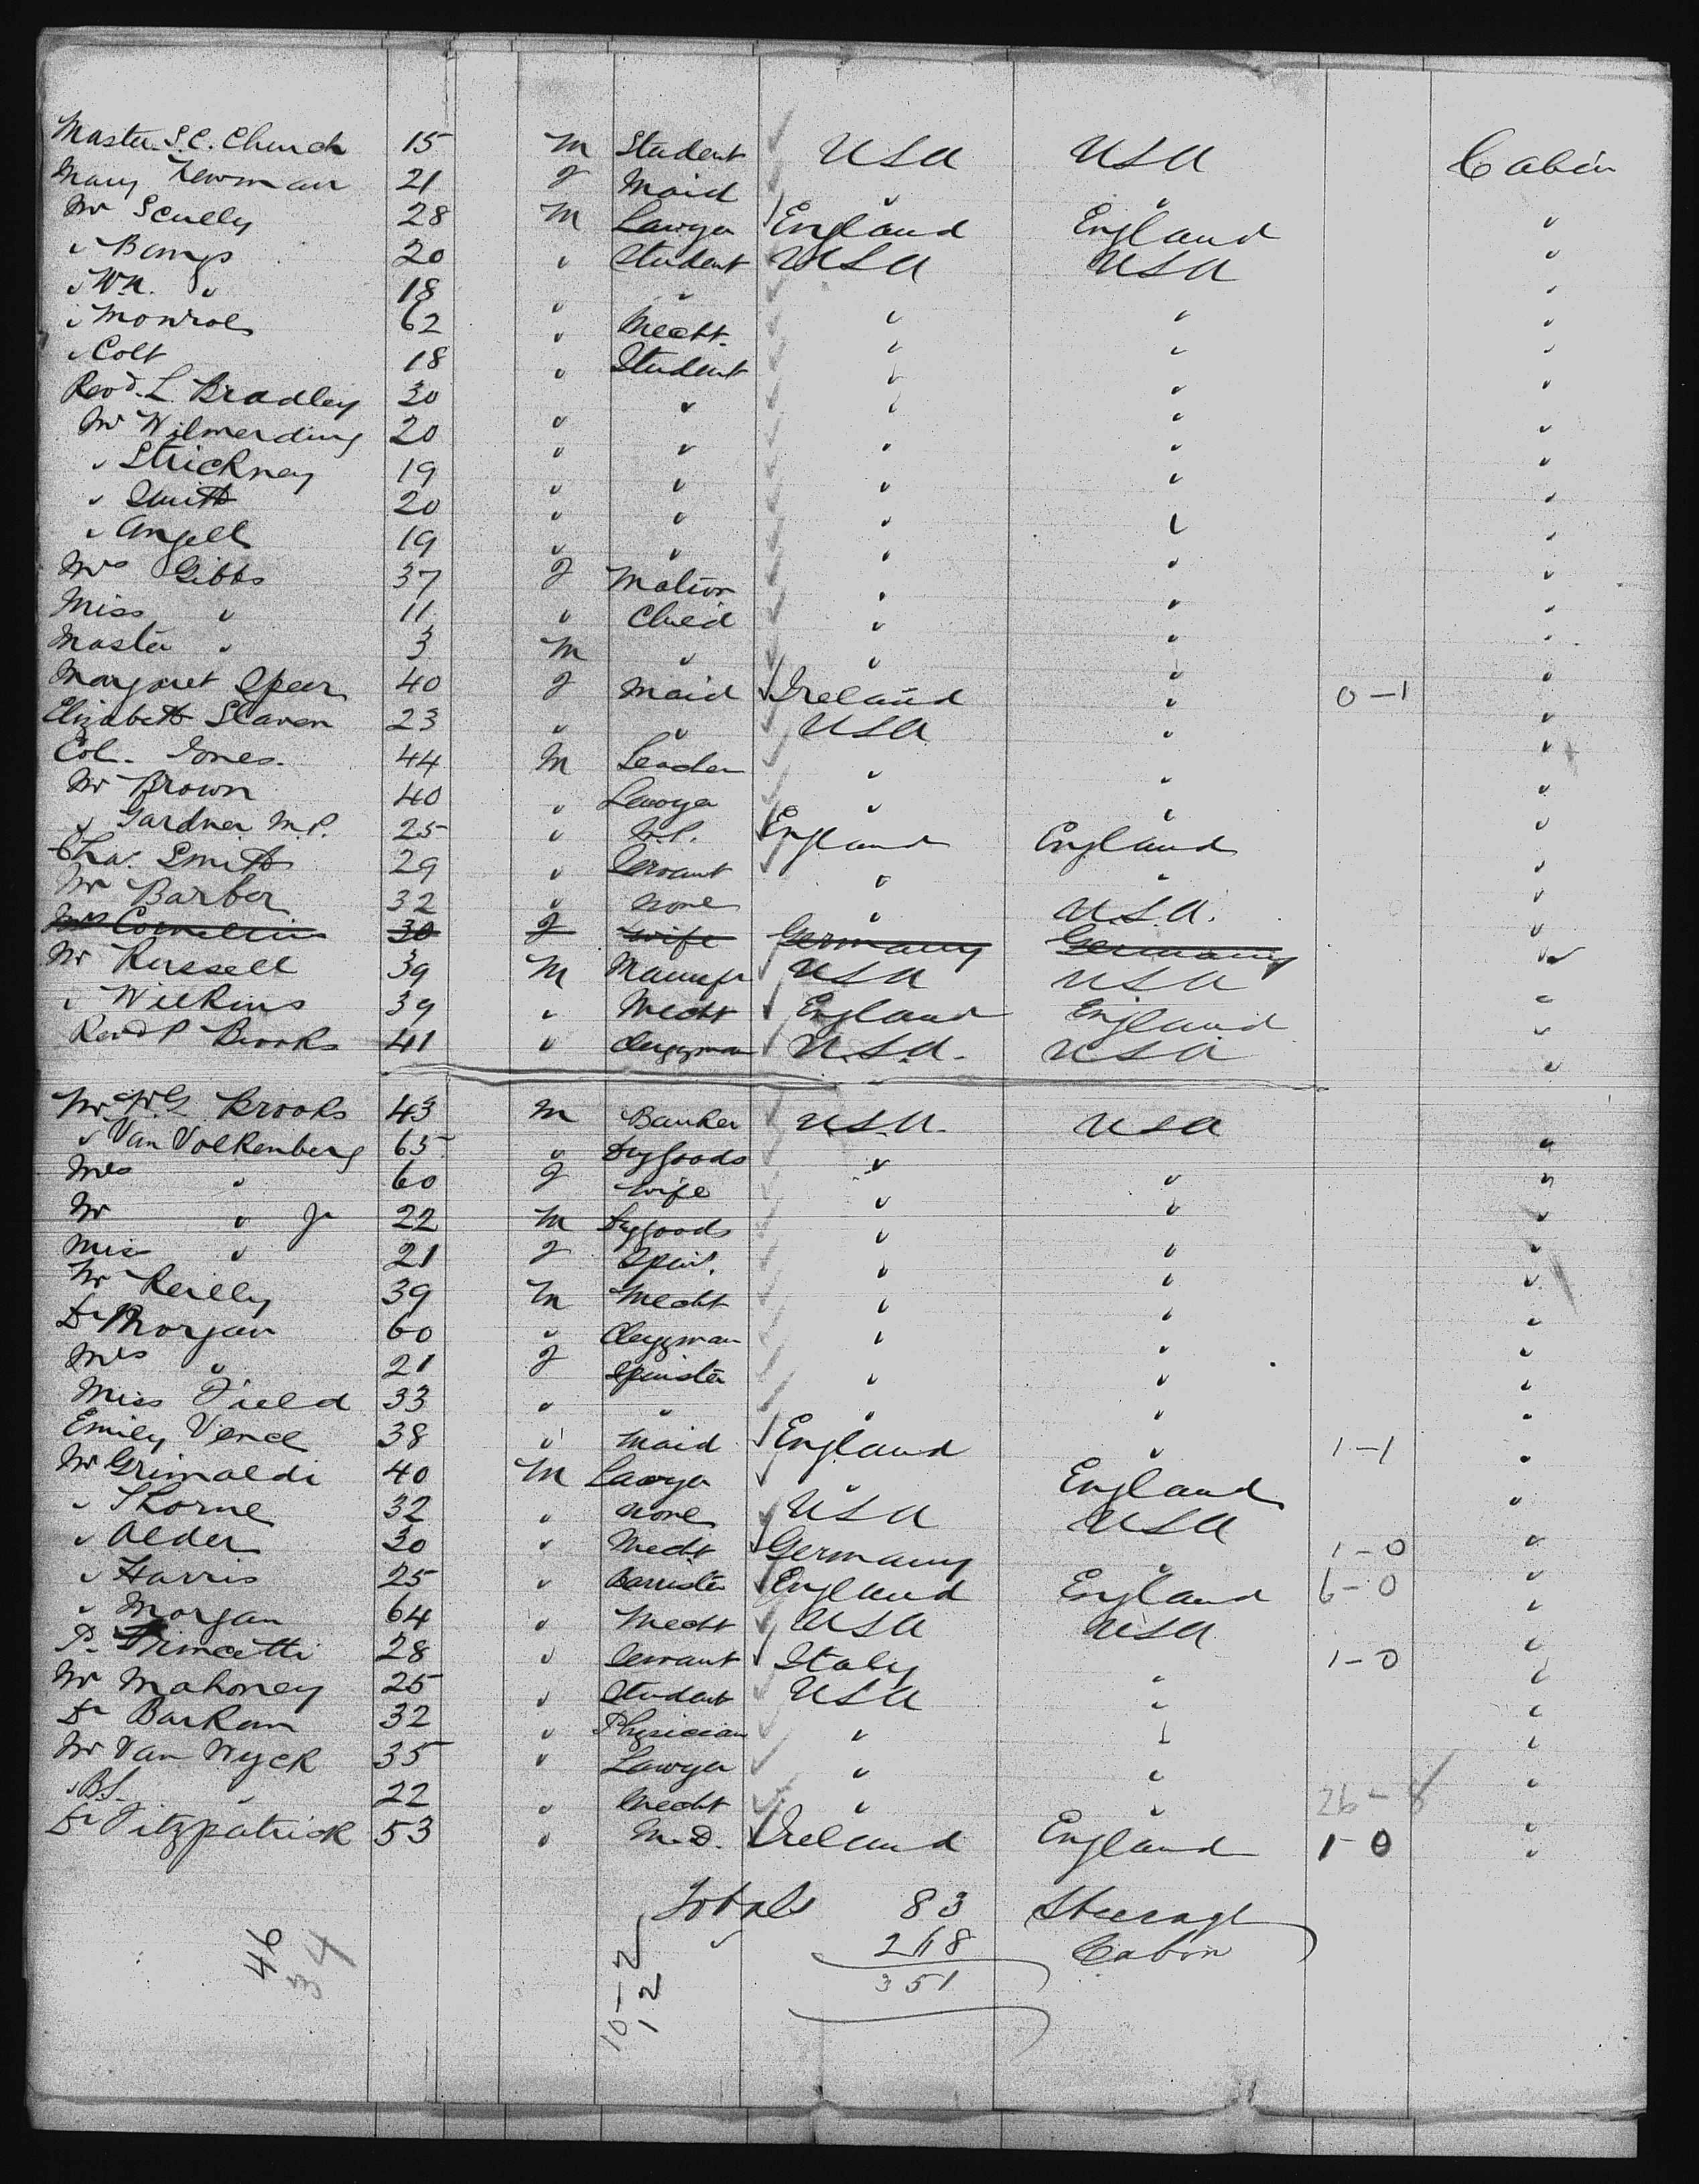 Master S.C. Church 15 M Student USA USA Cabin
Mary Newman 21 F Maid " "
Mr Scully 28 M Lawyer England England "
" Bangs 20 " Student USA USA "
" Wm. " 18 " " " " "
" Monroe 62 " Mecht. " " "
" Colt 18 " Student " " "
Revd. L. Bradley 30 " " " " "
Mr Wilmerding 20 " " " " "
" Strickney 19 " " " " "
" Smith 20 " " " " "
" Angell 19 " " " " "
Mrs Gibbs 37 F Matron " " "
Miss " 11 " Child " " "
Master " 3 M " " " "
Margaret Speer 40 F Maid Ireland " 0-1 "
Elizabeth Slaven 23 " " USA " "
Col. Jones. 44 M Leader " " "
Mr Brown 40 " Lawyer " " "
" Gardner M.P. 25 " M.P. England England "
Chas. Smith 29 " Servant " " "
Mr Barber 32 " None " U.S.A. "
Mrs Cornelius 30 F Wife Germany Germany "
Mr Russell 39 M Manufr USA USA "
" Wilkins 39 " Mecht England England "
Revd P Brooks 41 " Clergyman U.S.A. USA "
Mr W.G. Brooks 43 M Banker USA. USA
" Van Volkenberg 65 " Drygoods " " "
Mrs " 60 F Wife " " "
Mr " Jr 22 M Drygoods " " "
Miss " 21 F Spin. " " "
Mr Reilly 39 M Mecht " " "
Dr Morgan 60 " Clergyman " " "
Mrs " 21 F Spinster " " "
Miss Field 33 " " " " "
Emily Vend 38 " Maid England " 1-1 "
Mr Grimaldi 40 M Lawyer " England "
" Thorne 32 " None USA USA "
" Alder 30 " Mecht Germany " 1-0 "
" Harris 25 " Barrister England England 6-0 "
" Morgan 64 " Mecht USA USA "
P. 28 " Servant Italy " 1-0 "
Mr Mahoney 25 " Student USA " "
Dr Barkam 32 " Physician " " "
Mr Van Wyck 35 " Lawyer " " "
" B.S. " 22 " Mecht " " 26-8 "
Dr Fitzpatrick 53 " M.D. Ireland England 1-0 "
Totals 83 Steerage
" 268 Cabin
351
46
34
10-2
12